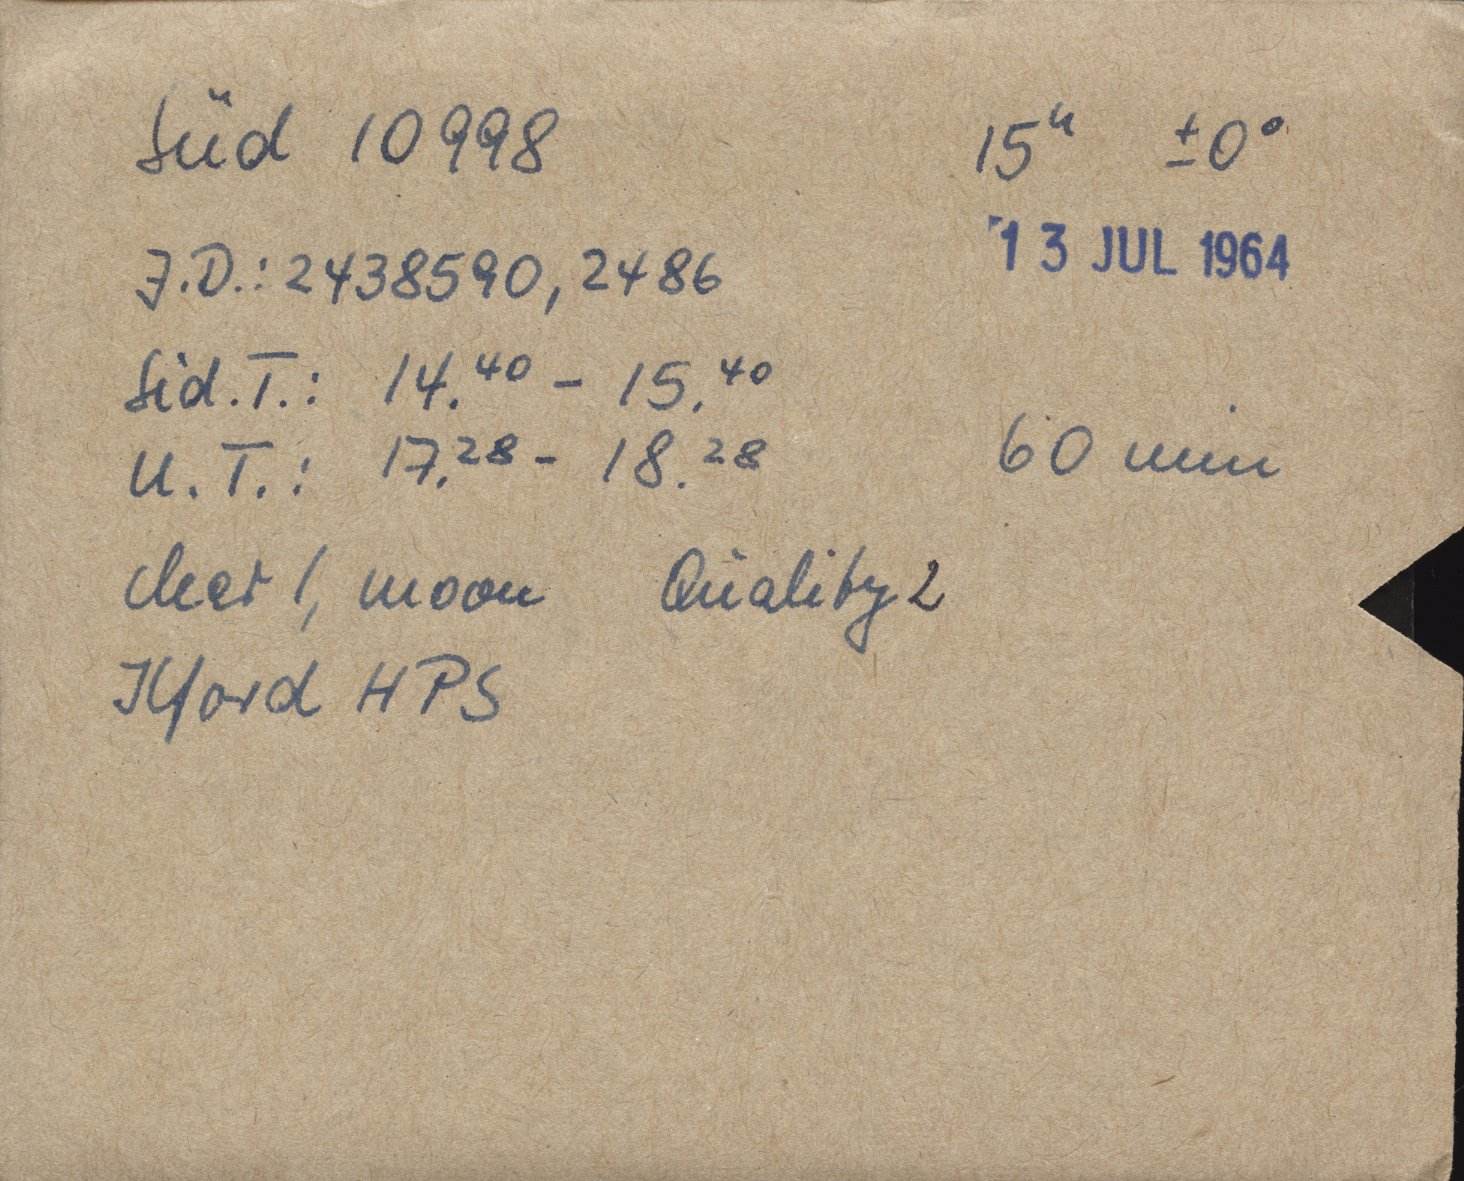 Süd 10998 15ʰ ±0°
13 JUL 1964
J.D.: 2438590,2486
Sid.T.: 14.⁴⁰ - 15.⁴⁰
U.T.: 17.²⁸ - 18.²⁸ 60 min
clear 1, moon Quality 2
Ilford HPS